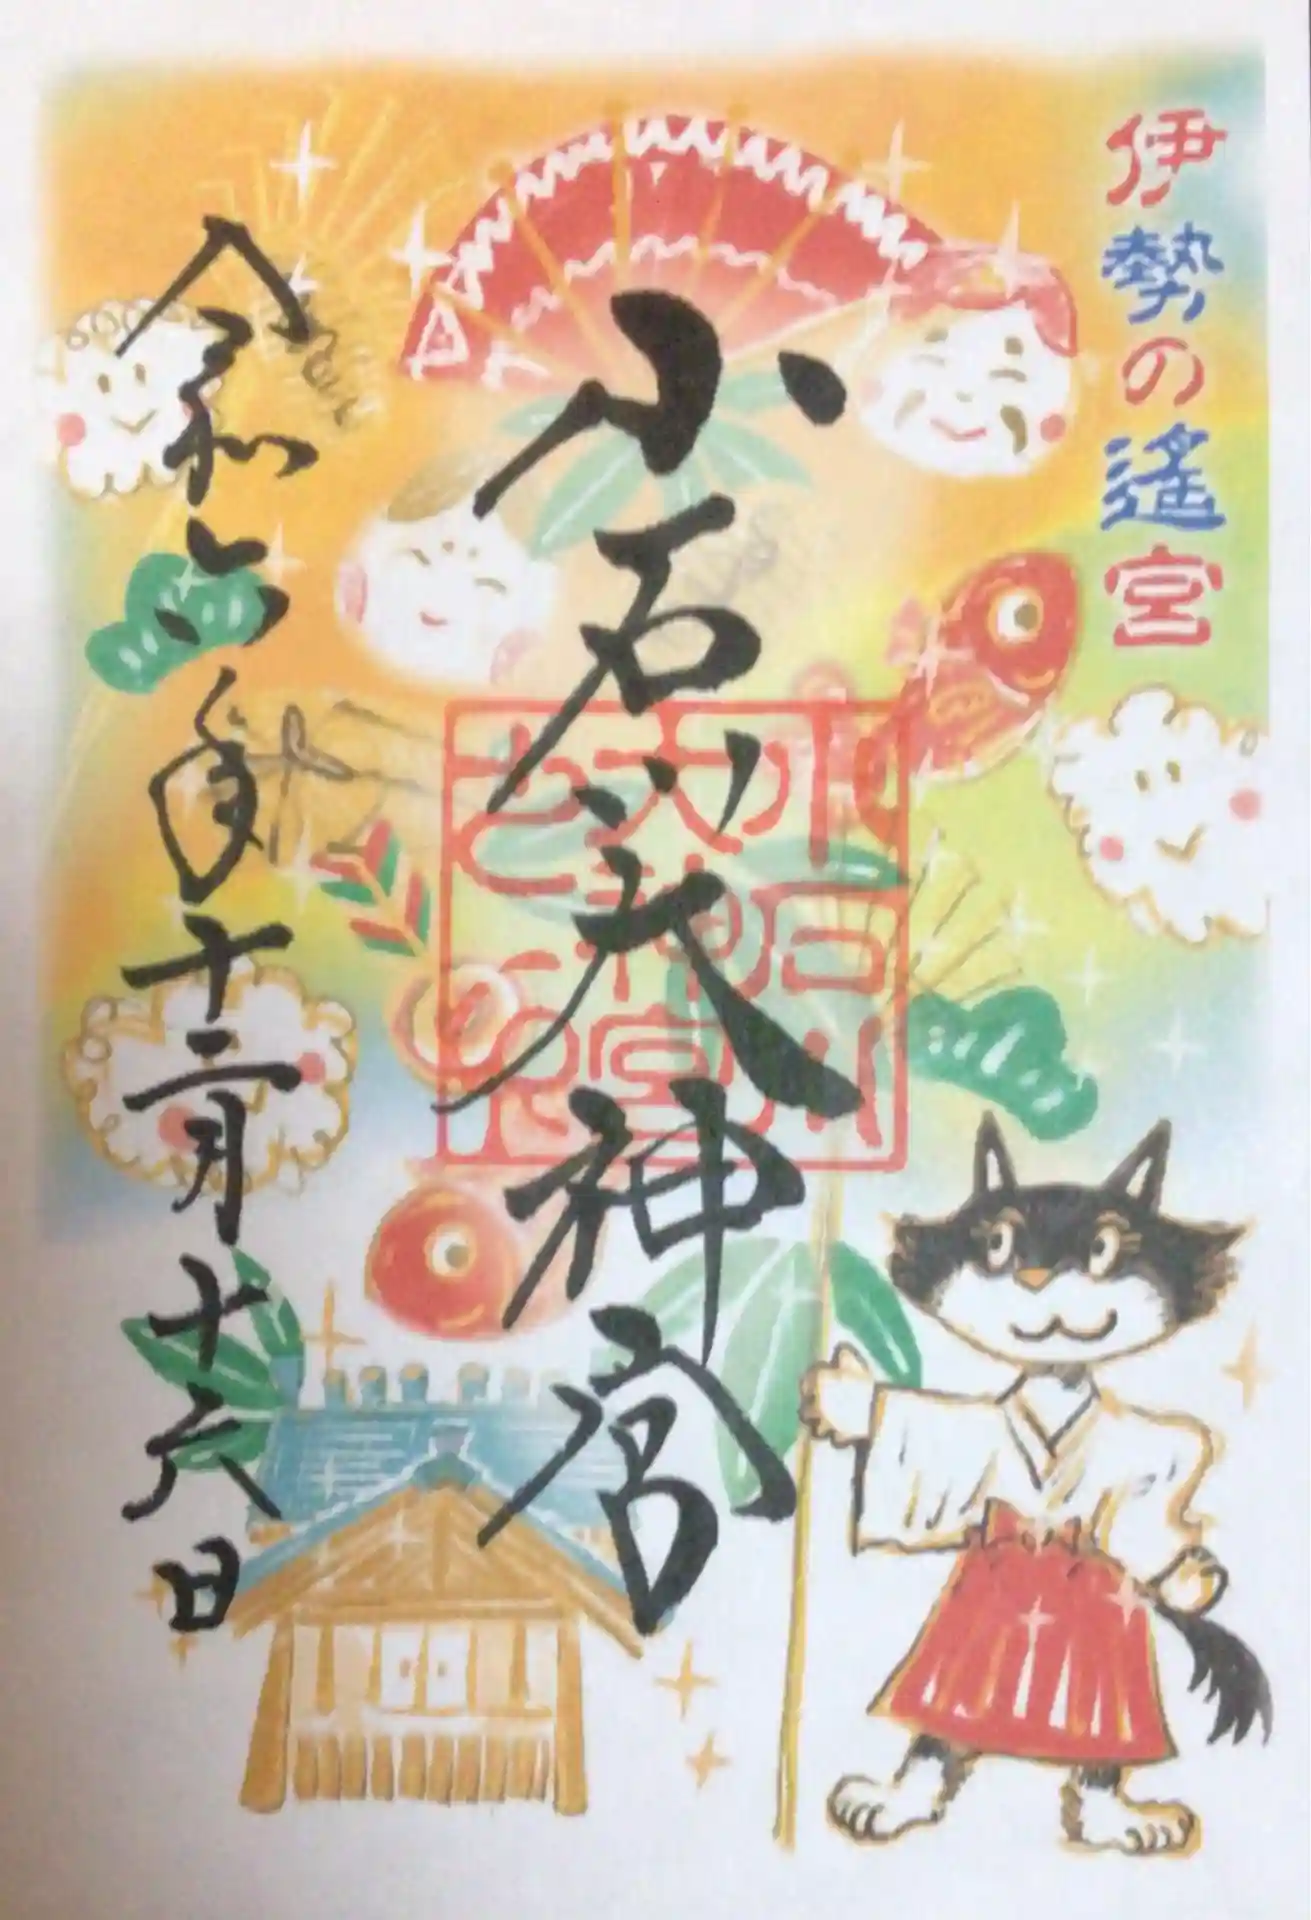 伊勢の遙宮
小石川大神宮
令和六年十二月十六日
小石川
大神宮
之印